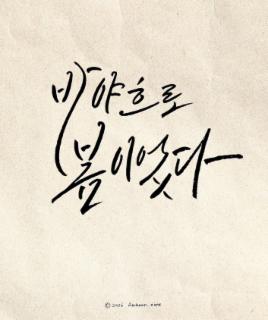 바야흐로
봄이었다